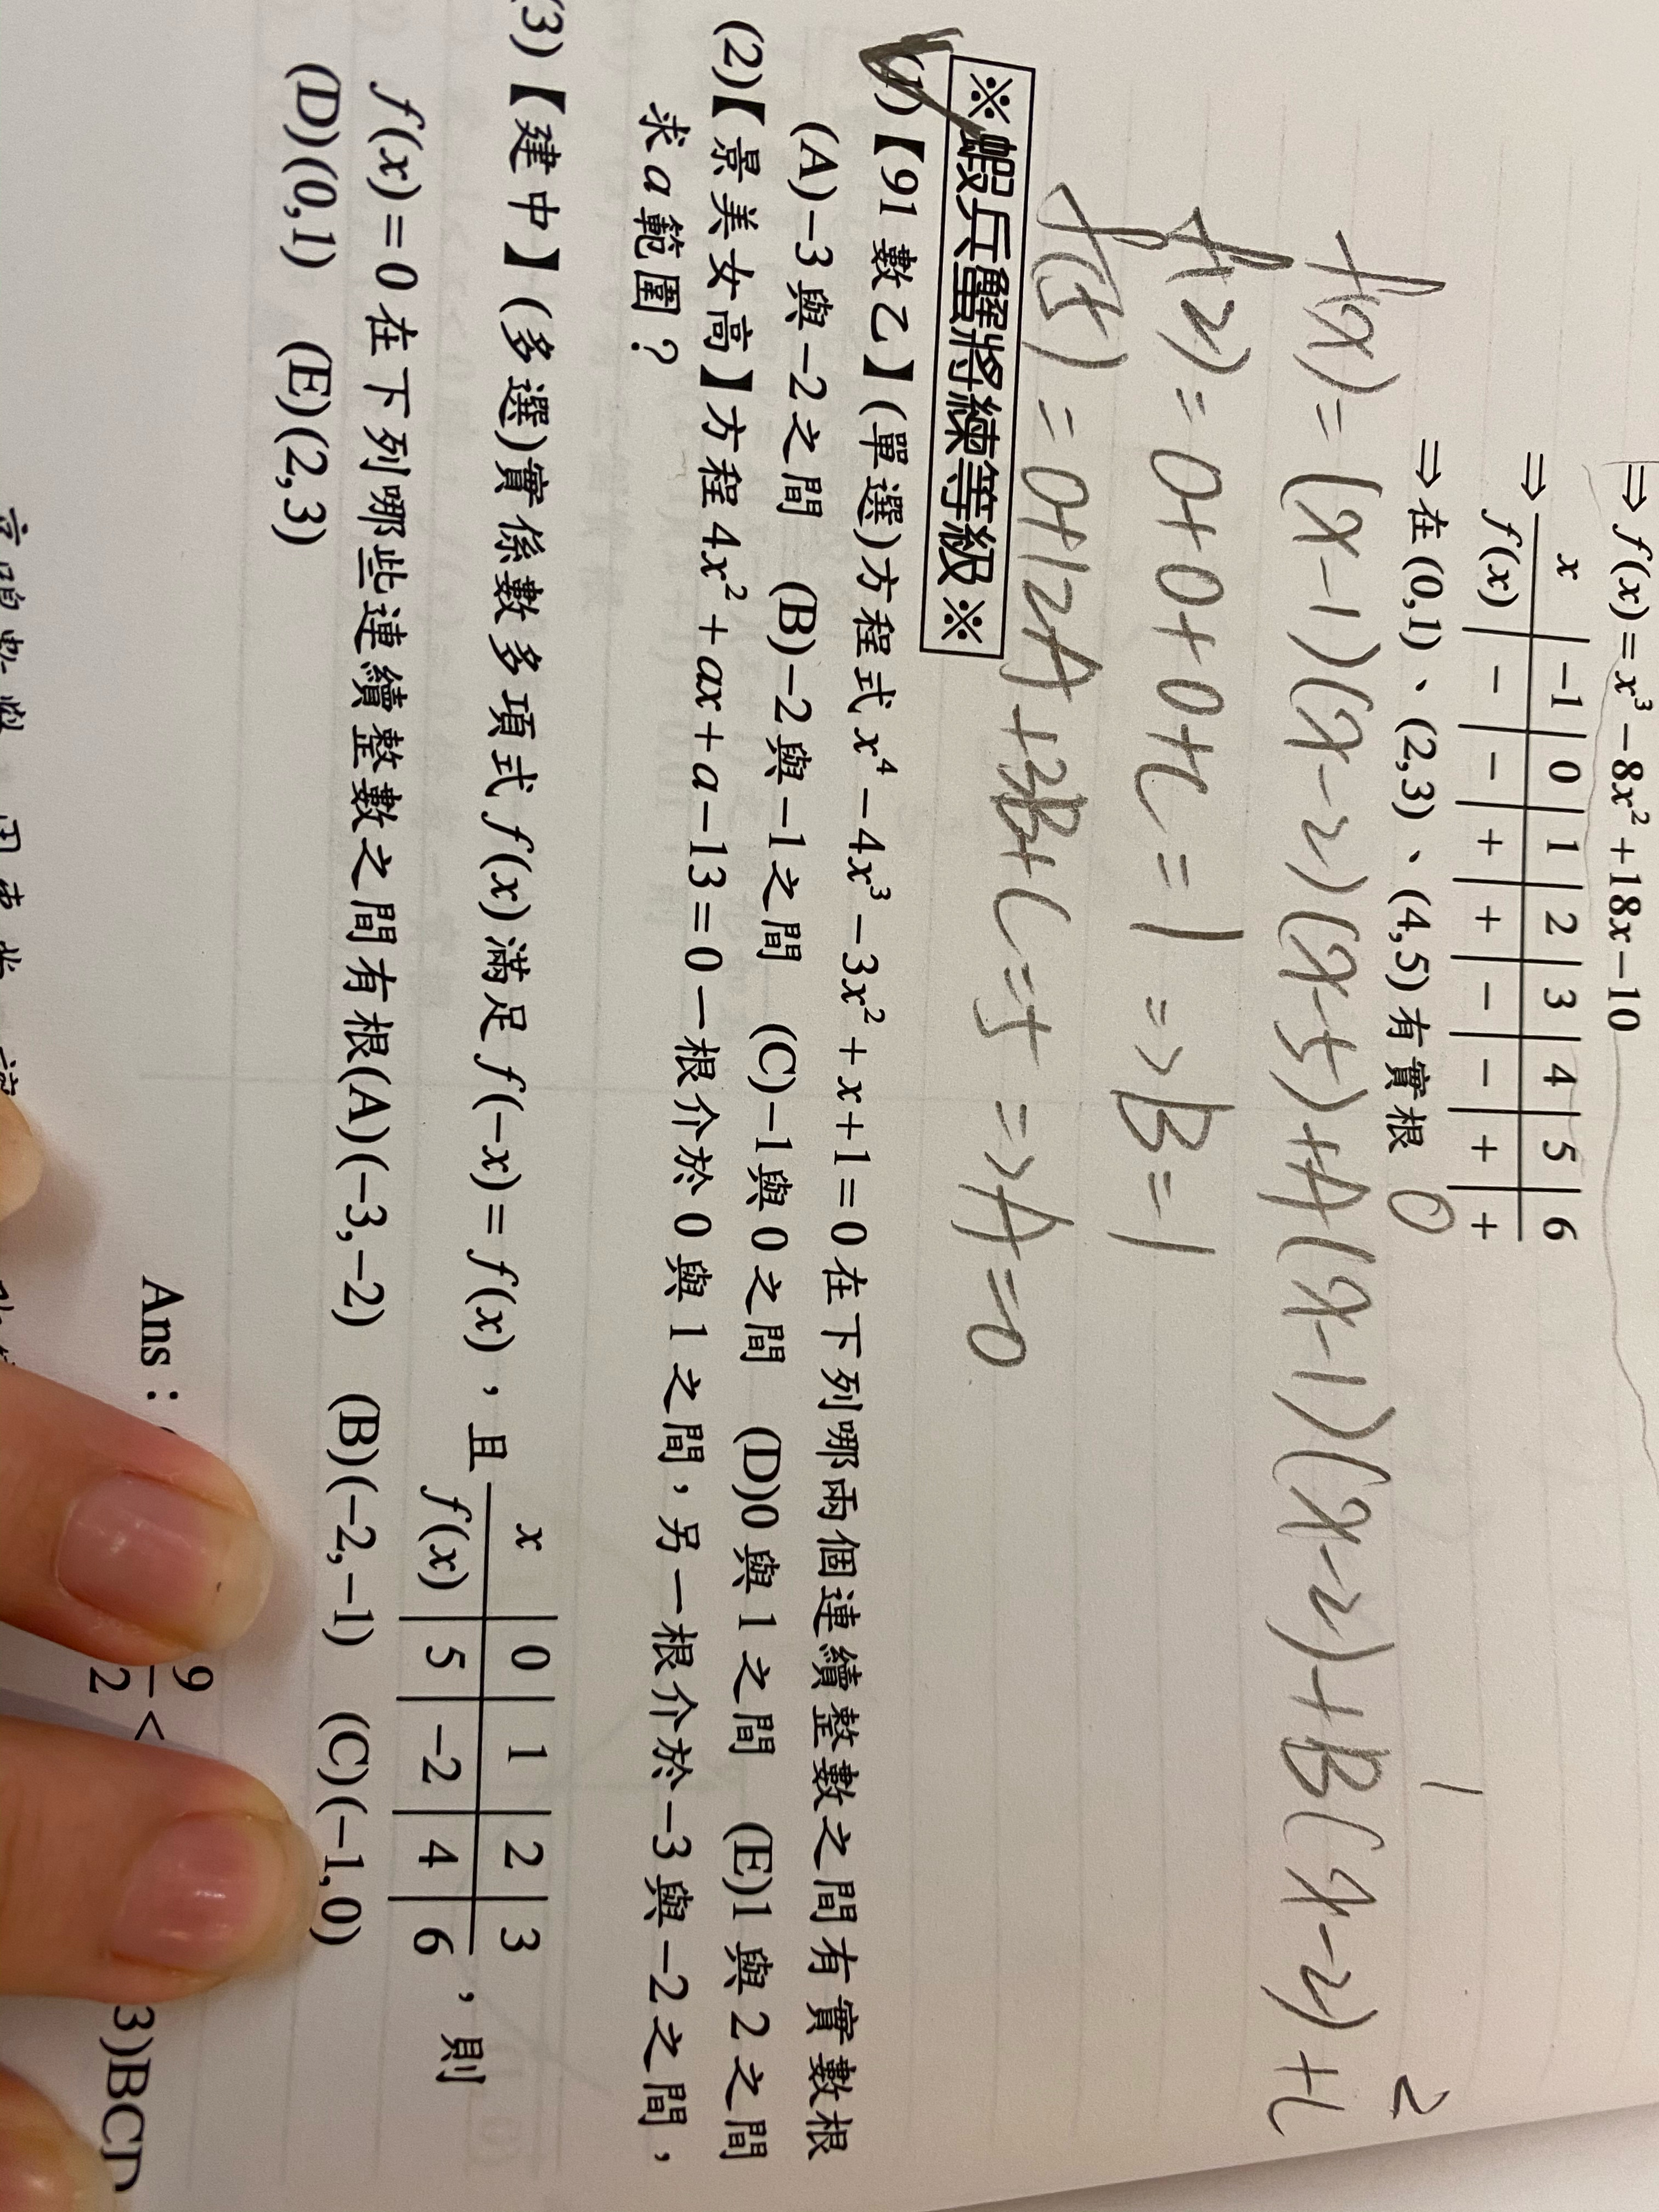 ⇒ f(x) = x³ − 8x² + 18x − 10
x | −1 | 0 | 1 | 2 | 3 | 4 | 5 | 6
⇒ f(x) | − | − | + | + | − | − | + | +
⇒ 在 (0,1)、(2,3)、(4,5) 有實根
0 1 2
f(x) = (x−1)(x−2)(x−5)+A(x−1)(x−2)+B(x−2)+C
f(2) = 0+0+0+C = 1 => B = 1
f(5) = 0+12A+3B+C = 5 => A = 0
※蝦兵蟹將練等級※
(1)【91 數乙】(單選)方程式 x⁴ − 4x³ − 3x² + x + 1 = 0 在下列哪兩個連續整數之間有實數根
(A)−3 與 −2 之間 (B)−2 與 −1 之間 (C)−1 與 0 之間 (D)0 與 1 之間 (E)1 與 2 之間
(2)【景美女高】方程 4x² + ax + a − 13 = 0 一根介於 0 與 1 之間，另一根介於 −3 與 −2 之間，
求 a 範圍？
3)【建中】(多選)實係數多項式 f(x) 滿足 f(−x) = f(x)，且
x | 0 | 1 | 2 | 3
f(x) | 5 | −2 | 4 | 6 ，則
f(x) = 0 在下列哪些連續整數之間有根(A)(−3,−2) (B)(−2,−1) (C)(−1,0)
(D)(0,1) (E)(2,3)
Ans： 9/2 < 3)BCD